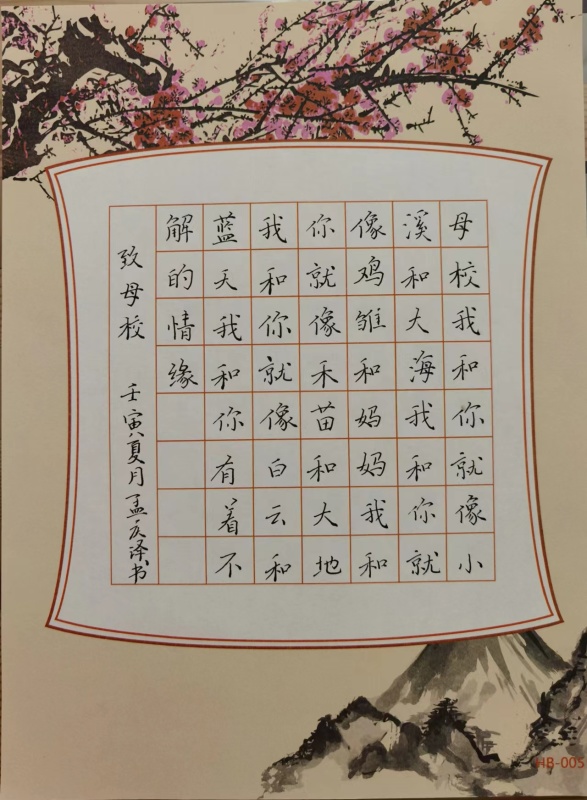 母校我和你就像小
溪和大海我和你就
像鸡雏和妈妈我和
你就像禾苗和大地
我和你就像白云和
蓝天我和你有着不
解的情缘
致母校 壬寅夏月孟庆泽书
HB-005